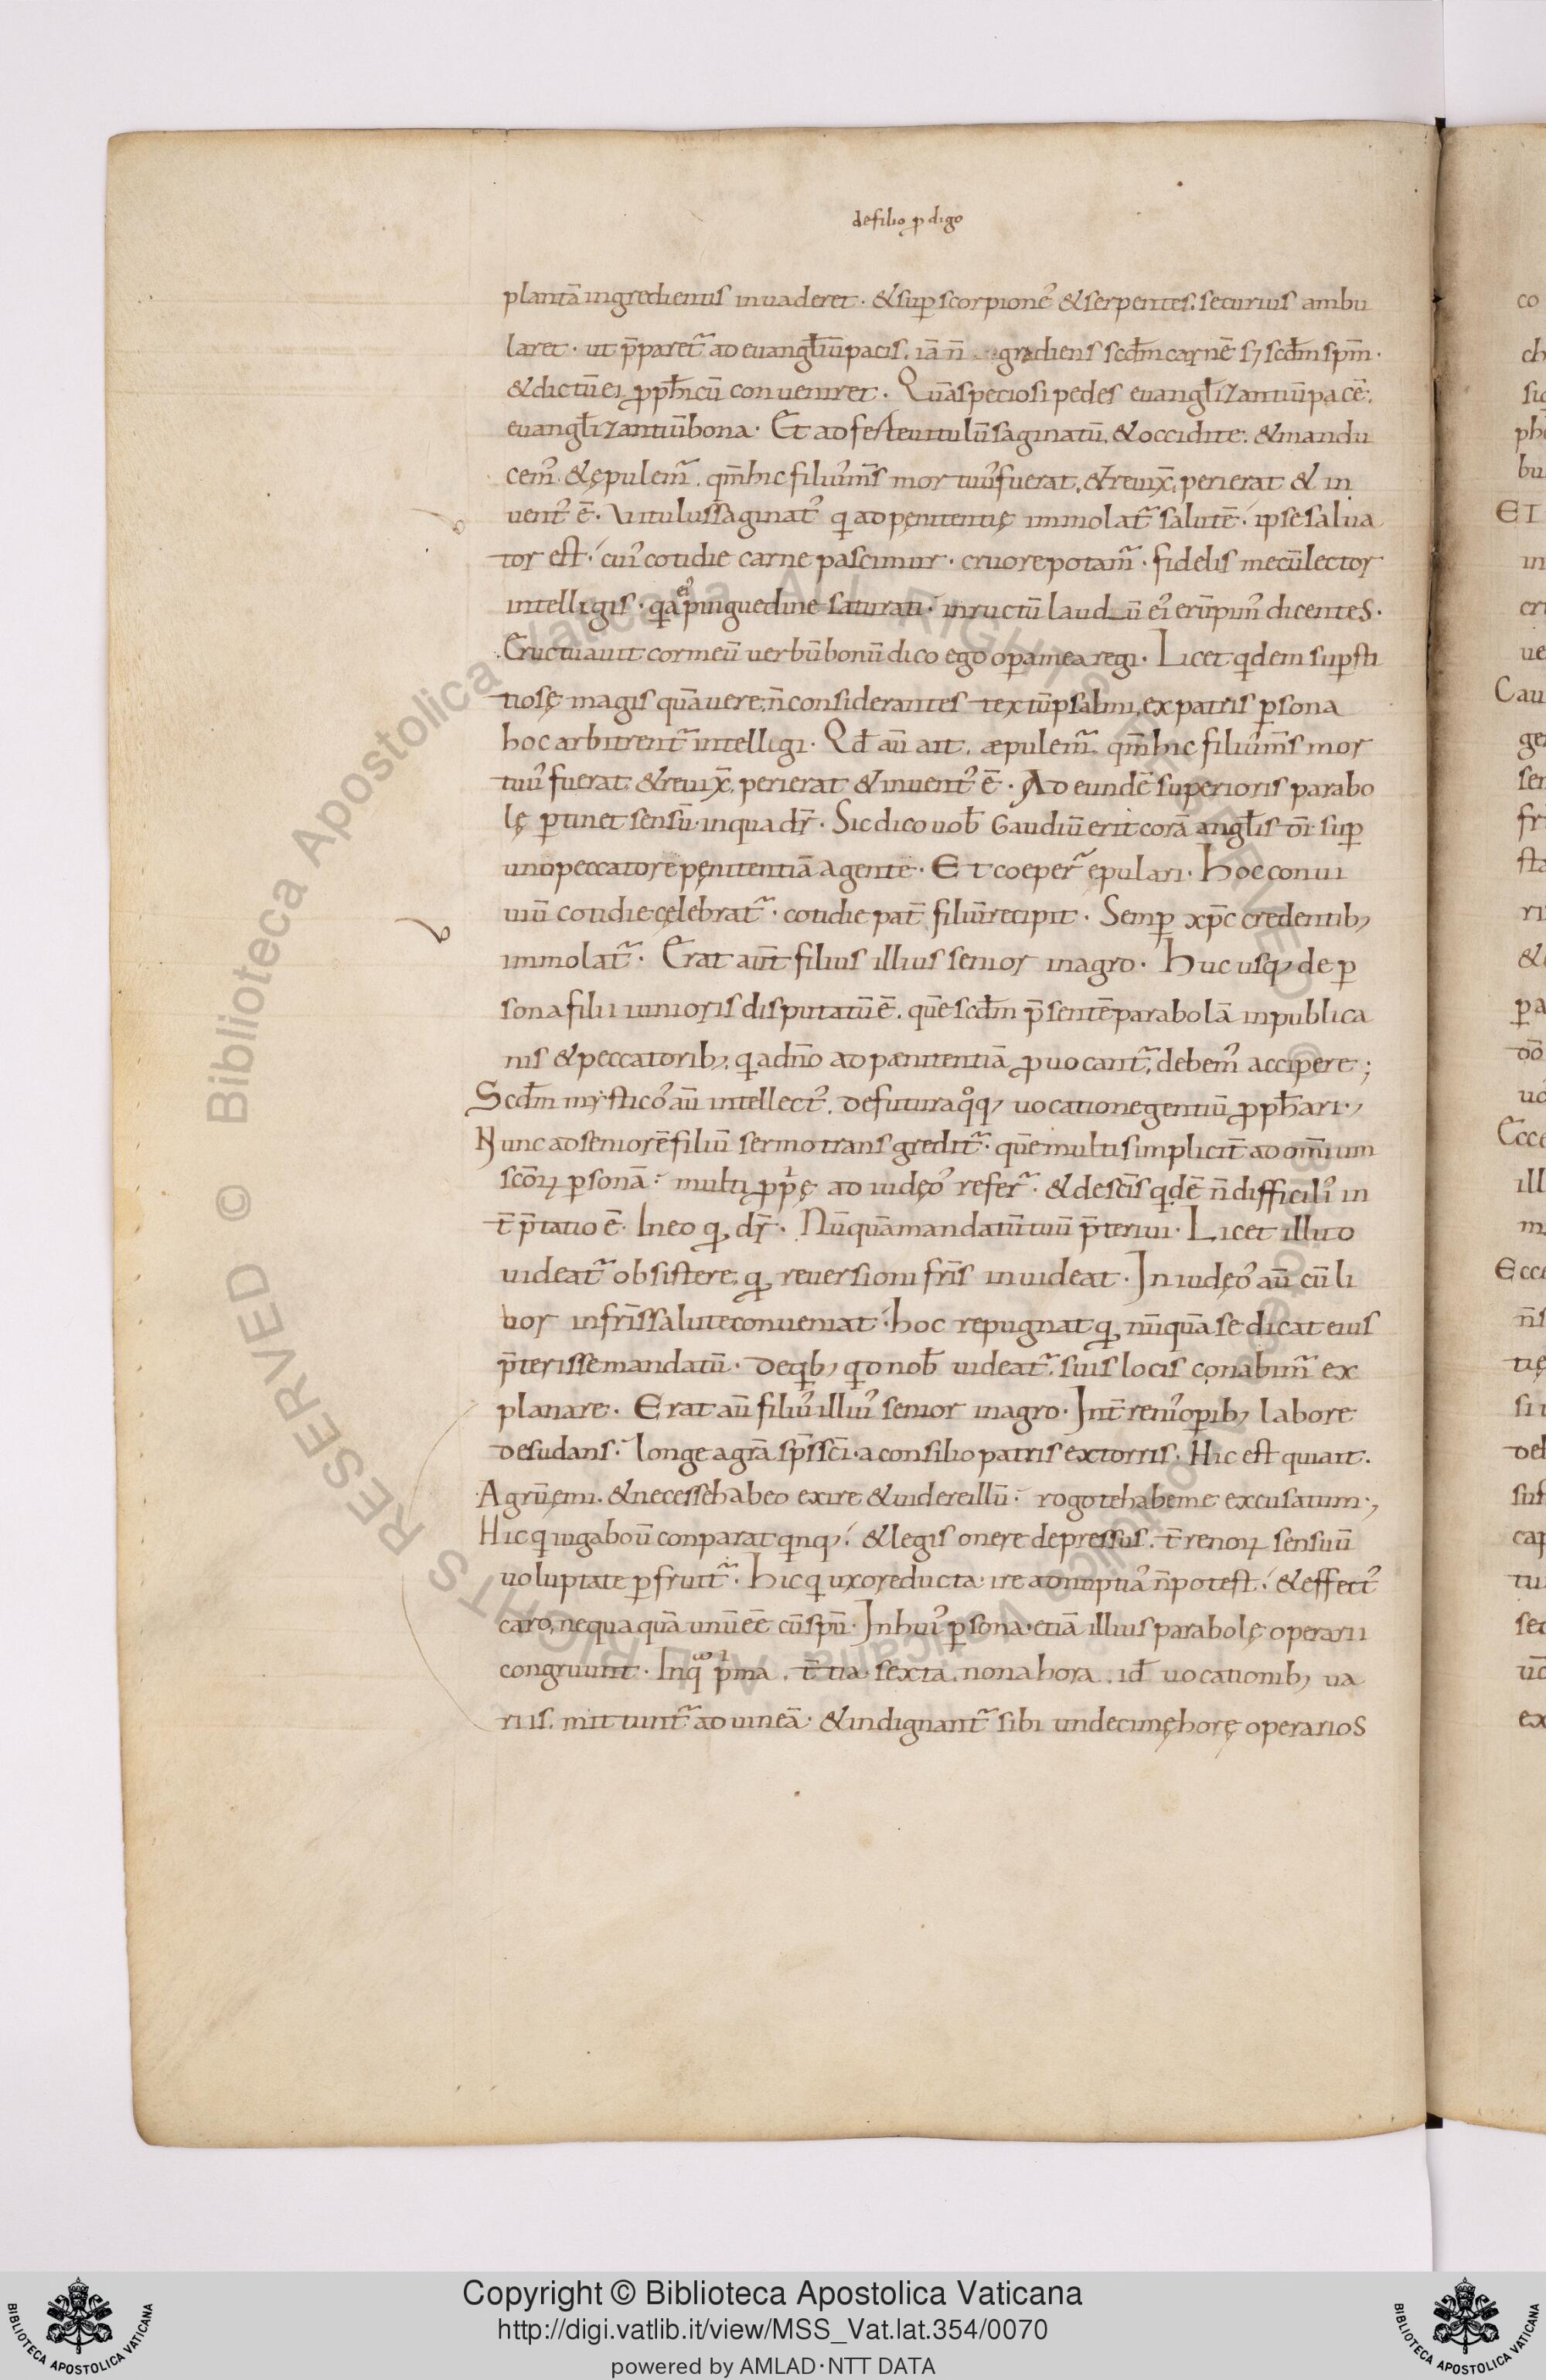 de filio p digo
plantā ingredientis inuaderet · & sup scorpione᾽ & serpentes. securius ambu
laret · ut p̄paret᷑ ad euangl̄iū pacis. iā n̄ gradiens scd̄m carnē sꝫ scd̄m sp̄m ·
& dictū ei ꝓph̄icū conueniret · Quā speciosi pedes euangl̄izantiū pacē;
euangl̄izantiū bona · Et adferte uitulū saginatū. & occidite. & mandu
cem᾽ & ępulem᷑. qm̄ hic filiu᾽ m̄s mortuu᾽ fuerat. & reuix̄. perierat & in
uent᾽ ē · Vitulus saginat᾽ q ad pęnitentię immolat᷑ salutē · ipse salua
tor est · cui᾽ cotidie carne pascimur · cruore potam᷑ · fidelis mecū lector
intelligis · q̄a ei᾽ pinguedine saturati · in ructū laudū ei᾽ erūpim᾽ dicentes ·
Eructauit cor meū uerbū bonū dico ego oꝑa mea regi · Licet qdem suꝑsti
tiosę magis quā uere. n̄ considerantes textū psalmi. ex patris ꝑsona
hoc arbitrent᷑ intelligi · Qd̄ aū ait. æpulem᷑. qm̄ hic filiu᾽ m̄s mor
tuu᾽ fuerat & reuix̄. perierat & inuent᾽ ē · Ad eundē superioris parabo
lę ꝑtinet sensū · in qua dr̄ · Sic dico uob̄ Gaudiū erit corā angl̄is dī · suꝑ
uno peccatore pęnitentiā agente · Et coeper᷑ epulari · Hoc conui
uiū cotidie cęlebrat᷑ · cotidie pat̄ filiū recipit · Semꝑ xp̄c credentibꝫ
immolat᷑ · Erat aut̄ filius illius senior in agro · Huc usqꝫ de ꝑ
sona filii iunioris disputatū ē. quē scd̄m p̄sentē parabolā in publica
nis & peccatoribꝫ. q a dn̄o ad pænitentiā ꝓuocant᷑, debem᾽ accipere ;
Scd̄m mystico᾽ aū intellect᾽. de futura qͦqꝫ uocatione gentiū ꝓph̄ari ·,
Nunc ad seniorē filiū sermo transgredit᷑ · quē multi simplicit̄ ad omnium
sc̄oꝝ ꝑsonā · multi ꝓp̍ę ad iudęo᾽ refer᷑ · & de sc̄is qdē n̄ difficili᾽ in
t̄p̄tatio ē · In eo q dr̄ · Nūquā mandatū tuū p̄teriui · Licet illud
uideat᷑ obsistere. q reuersioni fr̄is inuideat · In iudęo᾽ aū cū li
uor in fr̄is salute conueniat · hoc repugnat q nūquā se dicat eius
p̄terisse mandatū · De qbꝫ qd nob̄ uideat᷑. suis locis conabim᷑ ex
planare · Erat aū filiu᾽ illiu᾽ senior in agro · Int̄ renu᾽ oꝑibꝫ labore
desudans · longe a grā sp̄s sc̄i · a consilio patris extorris · Hic est qui ait ·
Agrū ęmi · & necesse habeo exire & uidere illū · rogo te habe me excusatum ·,
Hic q iuga boū conparat qnqꝫ · & legis onere depressus. t̄renoꝝ sensuū
uoluptate ꝑfruit᷑ · Hic q uxore ducta · ire ad nuptia᾽ n̄ potest · & effect᾽
caro, nequaquā unū eē cū sp̄u · In hui᾽ ꝑsona · etiā illius parabolę operarii
congruunt · In qͦ p̍ma. t̄tia. sexta. nona hora. id̄ uocationibꝫ ua
riis. mittunt᷑ ad uineā · & indignant᷑ sibi undecimę horę operarios
co
ch
EI
in
Cau
ge
sen
&
pa
Ecce
ill
cap
tu
ex
© Biblioteca Apostolica Vaticana ALL RIGHTS RESERVED © Biblioteca Apostolica Vaticana ALL RIGHTS RESERVED
Copyright © Biblioteca Apostolica Vaticana
http://digi.vatlib.it/view/MSS_Vat.lat.354/0070
powered by AMLAD·NTT DATA
BIBLIOTECA APOSTOLICA VATICANA
BIBLIOTECA APOSTOLICA VATICANA